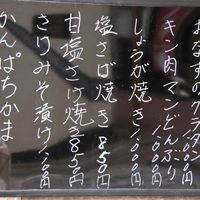 おなすのグラタン
1,000円
キン肉マンどんぶり
1,000円
しょうが焼き1,000円
塩さば焼き850円
甘塩さけ焼き850円
さりみそ漬け1,000円
かんぱちかま